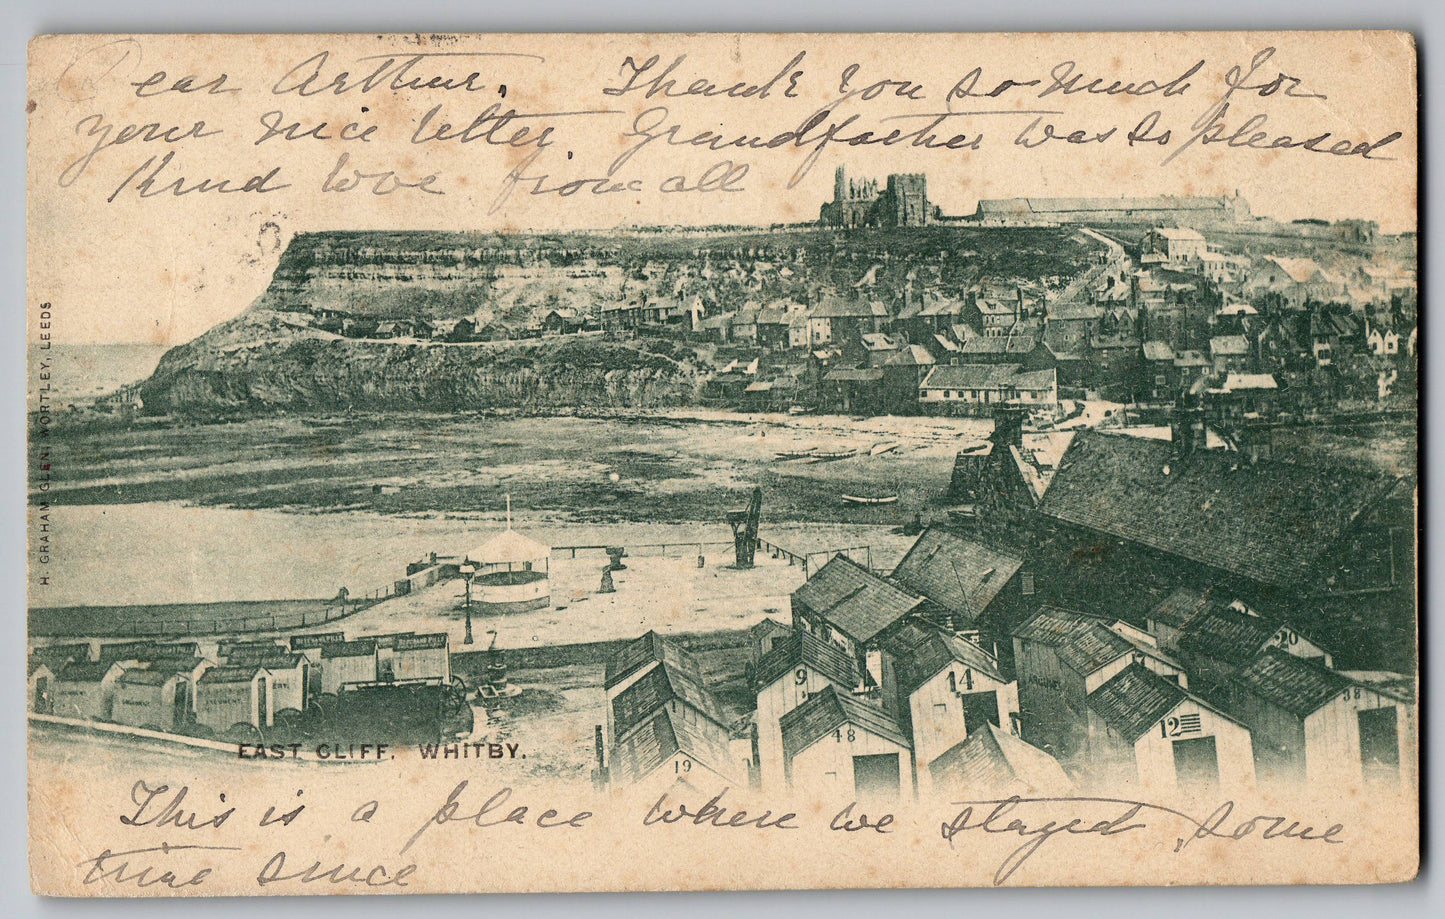 Dear Arthur, Thank you so much for
your nice letter. Grandfather was so pleased
Kind love from all
H. GRAHAM GLEN, WORTLEY, LEEDS
9
14
20
38
48
12
19
EAST CLIFF, WHITBY.
This is a place where we stayed, some
time since